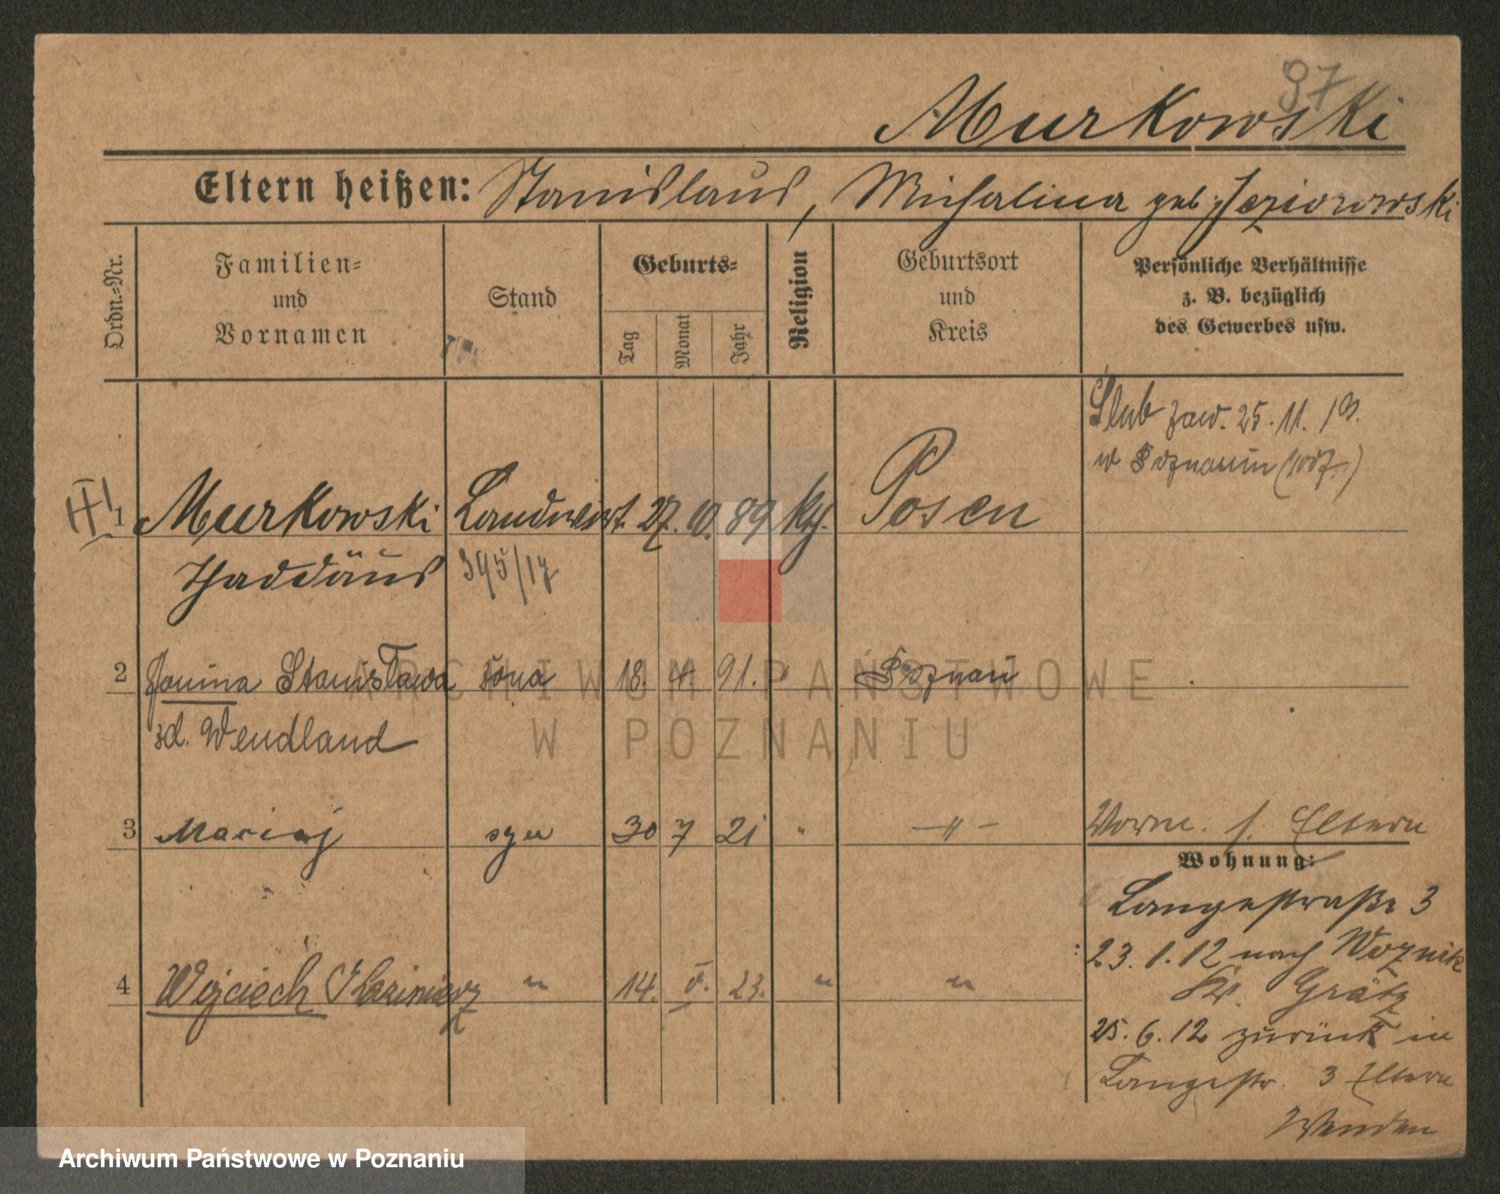 97
Murkowski
Eltern heißen: Stanislaus, Michalina geb. Jeziorowski
Ordn.-Nr.
Familien- und Vornamen
Stand
Geburts-
Tag
Monat
Jahr
Religion
Geburtsort und Kreis
Persönliche Verhältnisse
z. B. bezüglich
des Gewerbes usw.
Ślub zaw. 25. 11. 19.
w Poznaniu
1 Murkowski Landwirt 27. 10. 89 Posen
Thaddäus 395/17
2 Janina Stanisława żona 18. 4. 91. " Poznań
zd. Wendland
3 Maciej syn 30 7 21 " - " -
Vorm. s. Eltern
Wohnung:
Langestraße 3
23. 1. 12 nach Woznik
Kr. Grätz
4 Wojciech Kazimierz " 14. V. 23. " "
25. 6. 12 zurück in
Langestr. 3 Eltern
ARCHIWUM PAŃSTWOWE
W POZNANIU
Archiwum Państwowe w Poznaniu